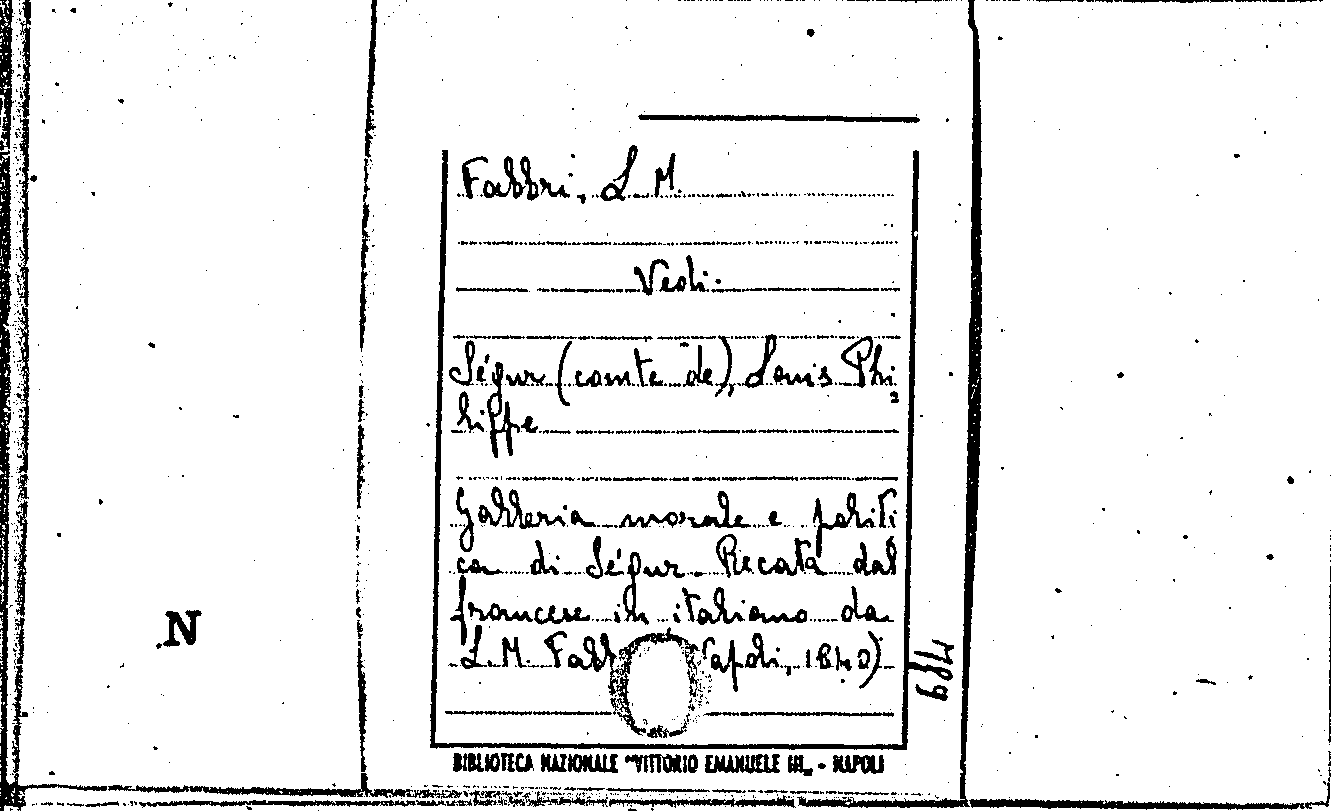 Fabbri, L. M.
Vedi:
Ségur (comte de), Louis Phi
lippe
Galleria morale e politi
ca di Ségur. Recata dal
francese in italiano da
L. M. Fabb apoli, 1840)
N
BIBLIOTECA NAZIONALE "VITTORIO EMANUELE III„ - NAPOLI